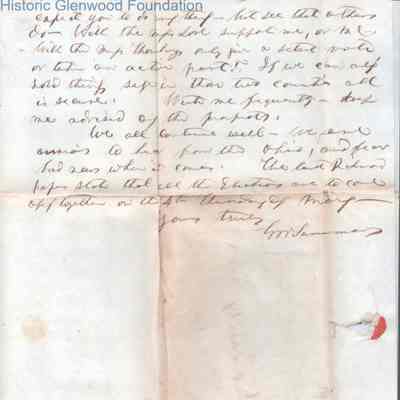 Historic Glenwood Foundation
expect you to do any thing — but see that others
do. Will the support me, or
Will the only give a silent vote
or take an active part? If we can only
hold things safe in these two counties all
is secure. Write me frequently — keep
me advised of the prospects.
We all continue well — We are
anxious to hear from the Ohio, and fear
bad news when it comes. The last Richmond
paper states that all the Elections are to come
off together on the 4th Thursday of May —
Yours truly
G W Summers